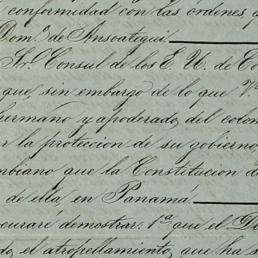 conformidad con las ordenes
Dom.º de Ansoategui.
Sr. Consul de los E. U. de Co
que sin embargo de lo que V.
hermano y apoderado, del colom
r la proteccion de su gobierno,
mbiano que la Constitucion d
de ella, en Panamá.
curaré demostrar. 1.º que el D
do, el atropellamiento, que ha s